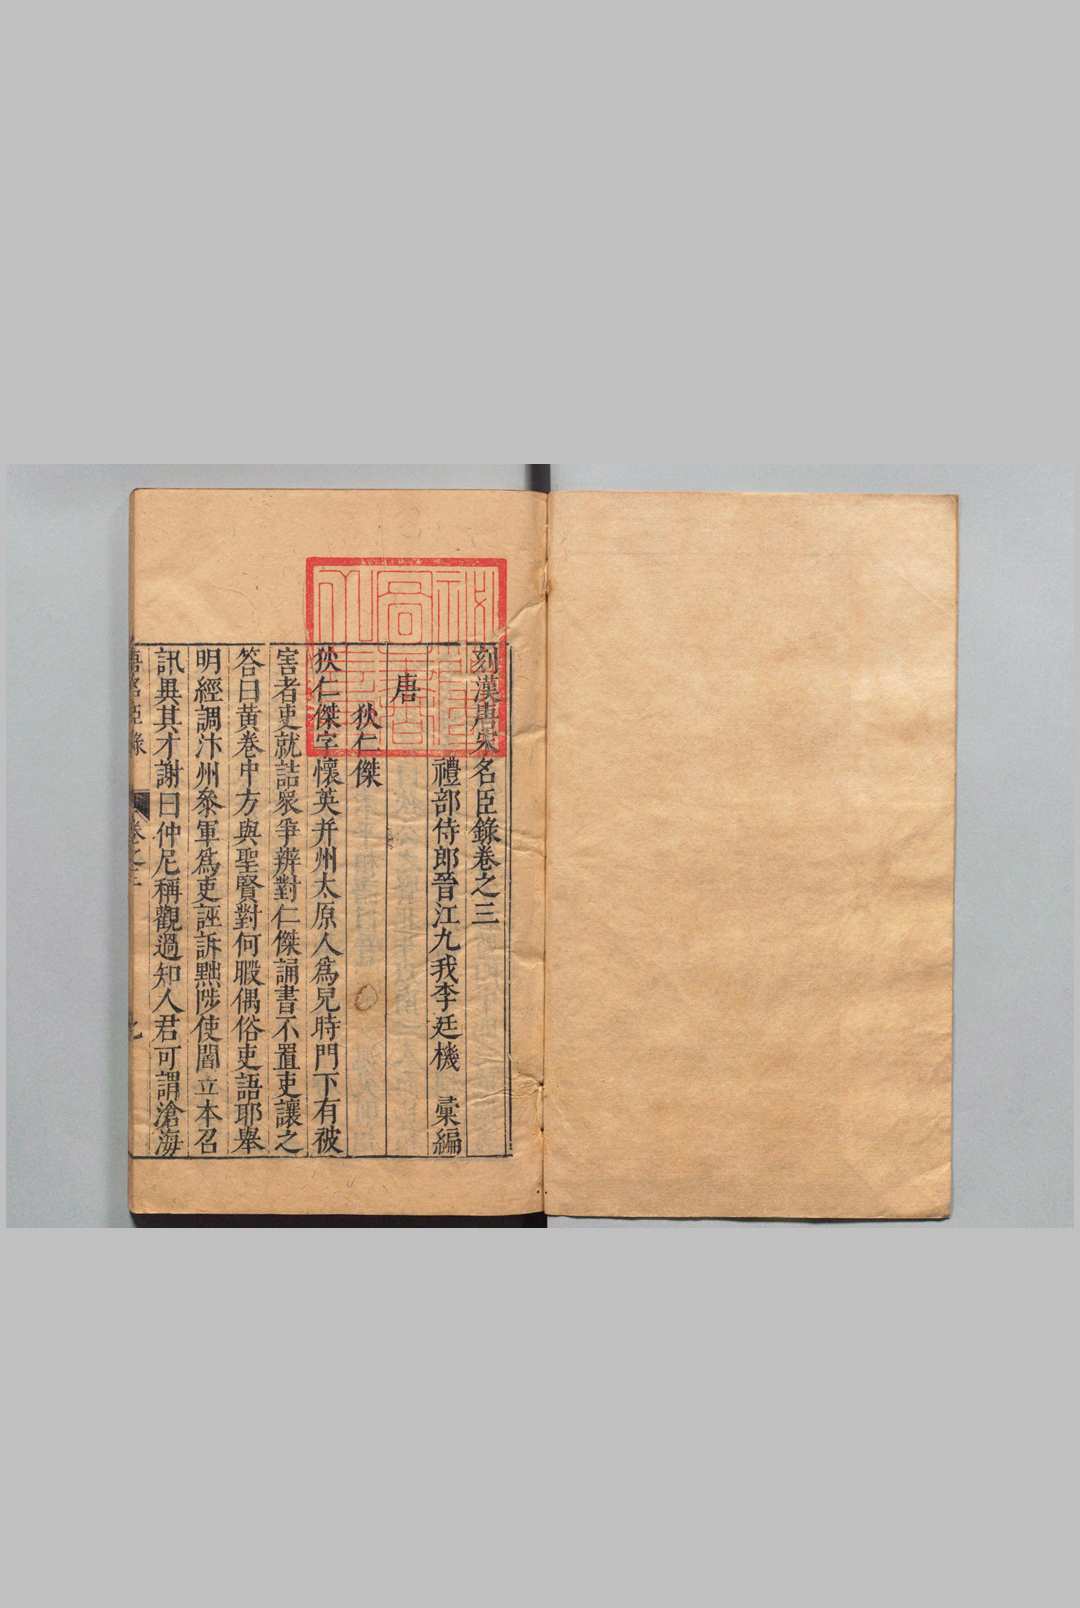 刻漢唐宋名臣錄卷之三
禮部侍郎晉江九我李廷機 彙編
唐
狄仁傑
狄仁傑字懷英并州太原人爲兒時門下有被
害者吏就詰衆爭辨對仁傑誦書不置吏讓之
答曰黃卷中方與聖賢對何暇偶俗吏語耶舉
明經調汴州叅軍爲吏誣訴黜陟使閻立本召
訊異其才謝曰仲尼稱觀過知人君可謂滄海
卷之三